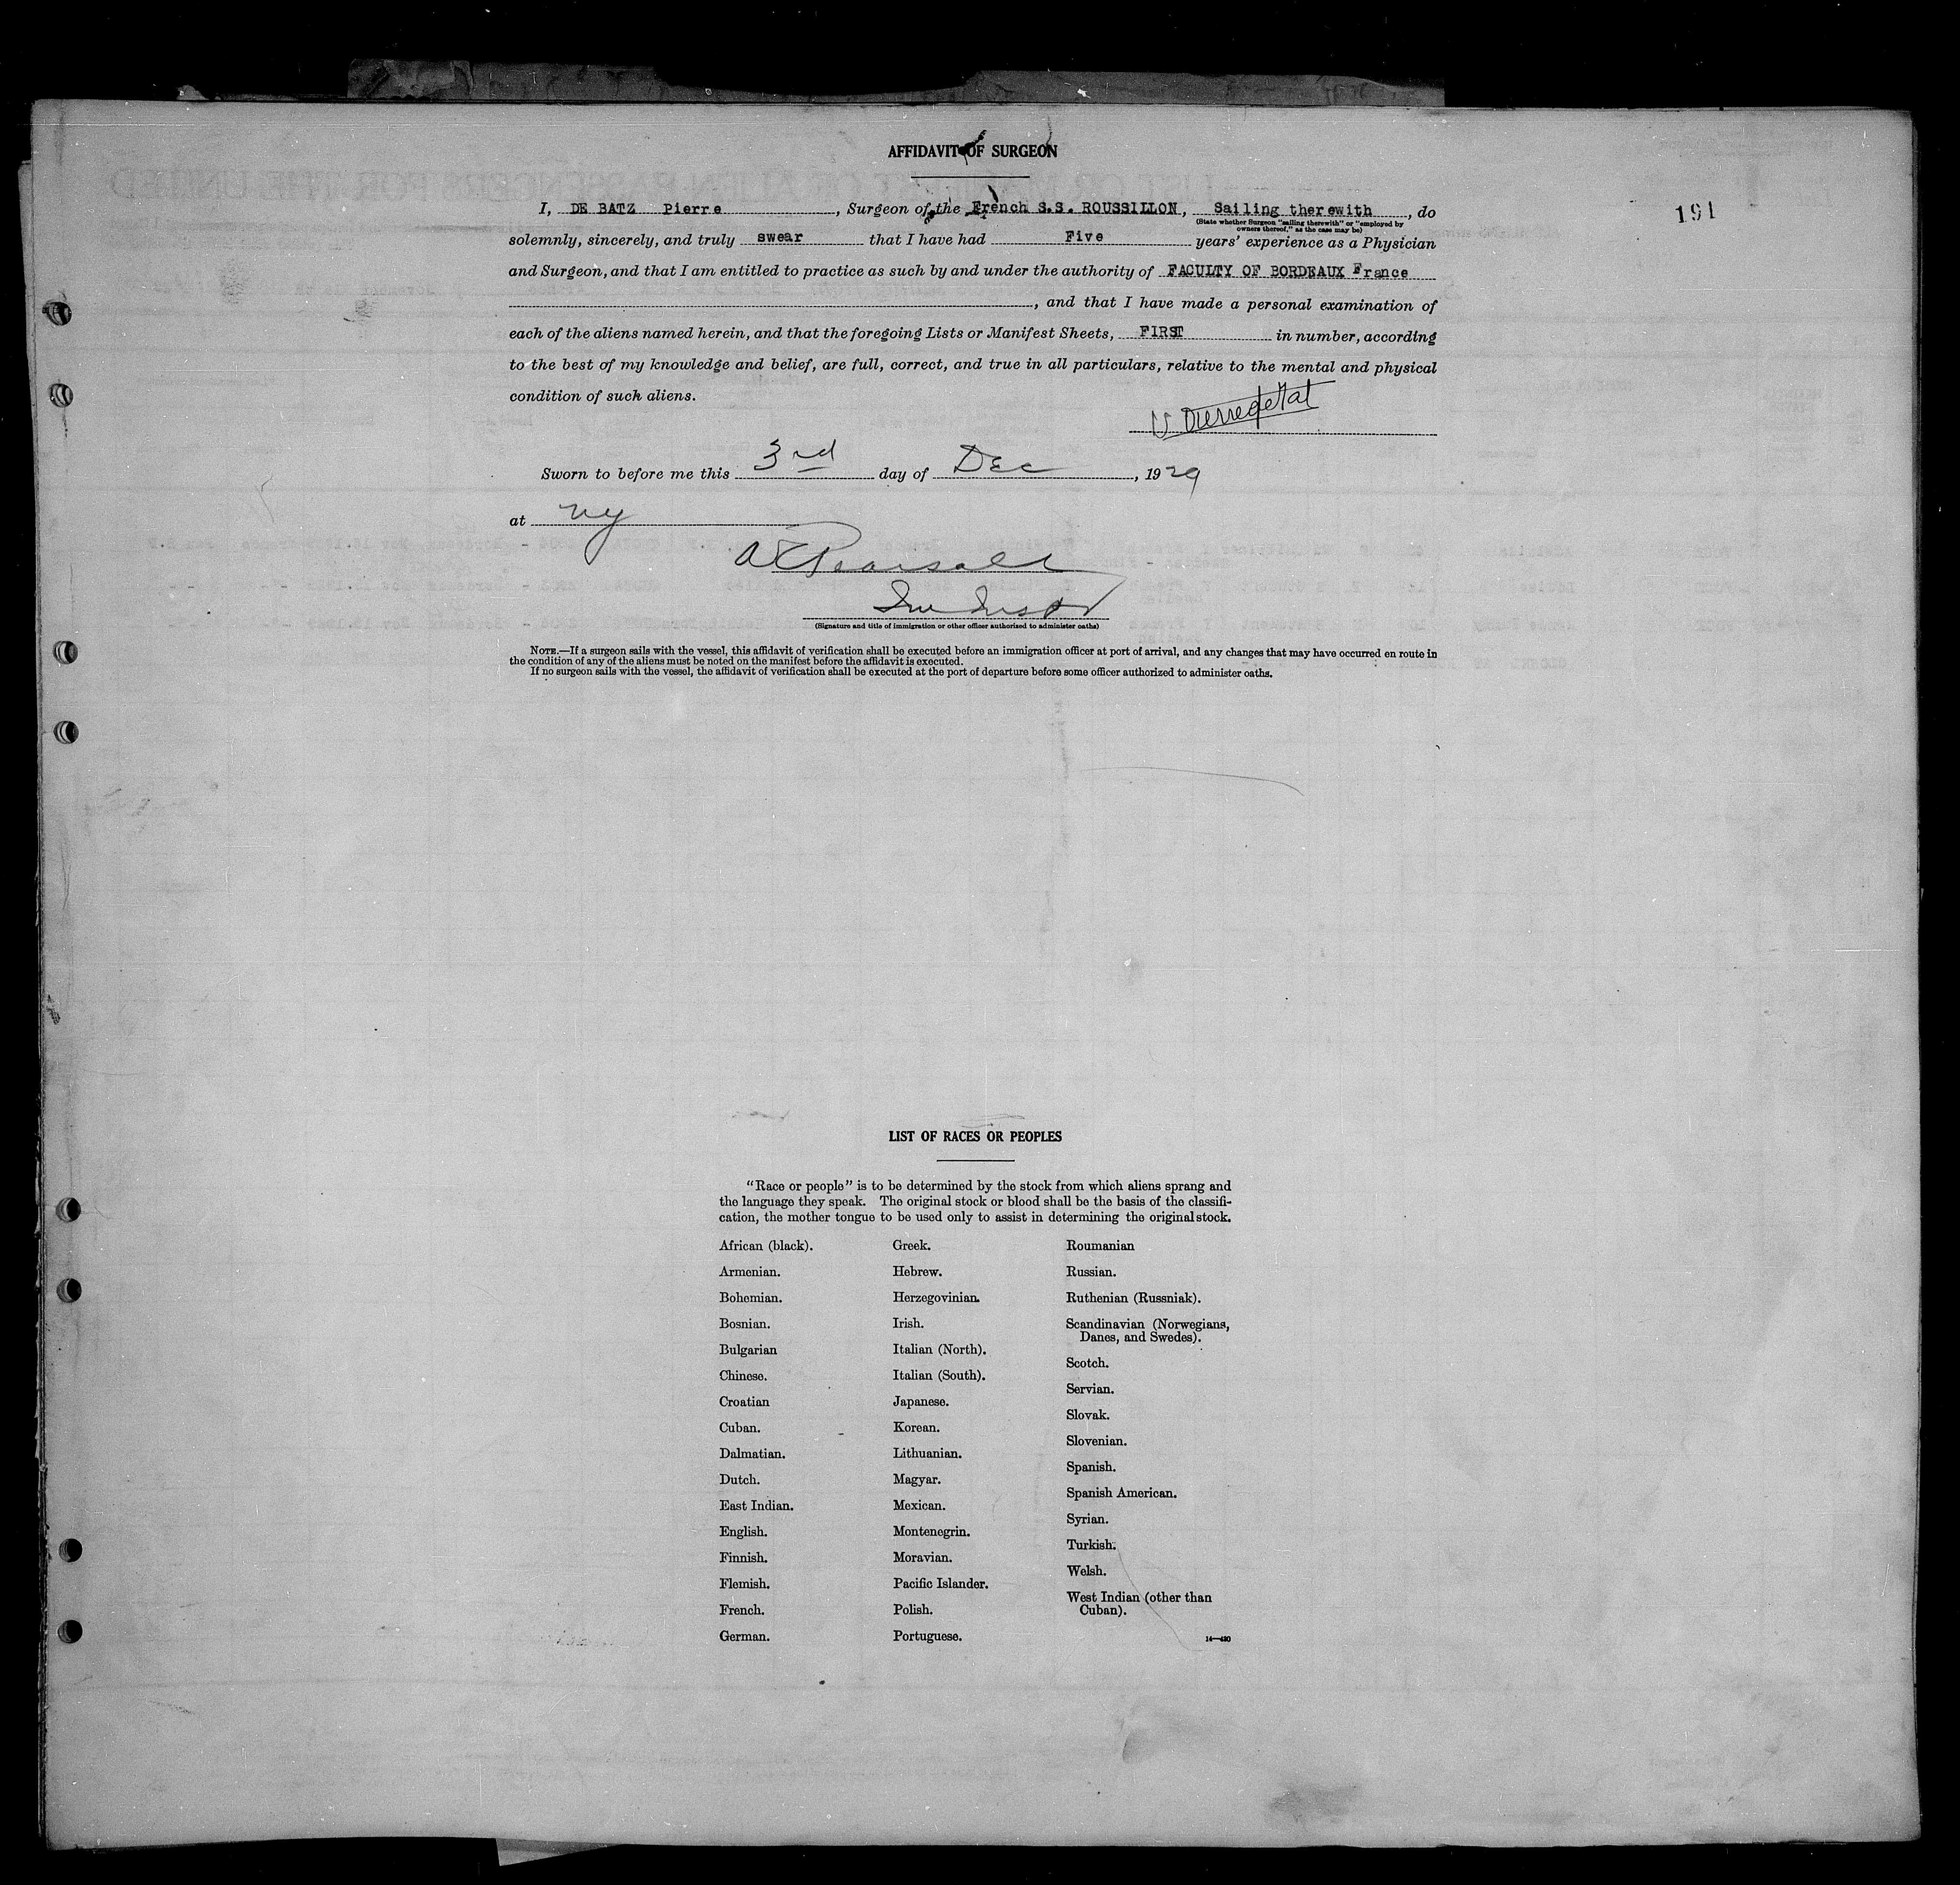 AFFIDAVIT OF SURGEON
191
I, DE BATZ Pierre, Surgeon of the French S.S. ROUSSILLON, Sailing therewith, do
(State whether Surgeon "sailing therewith" or "employed by
owners thereof," as the case may be)
solemnly, sincerely, and truly swear that I have had Five years' experience as a Physician
and Surgeon, and that I am entitled to practice as such by and under the authority of FACULTY OF BORDEAUX France
, and that I have made a personal examination of
each of the aliens named herein, and that the foregoing Lists or Manifest Sheets, FIRST in number, according
to the best of my knowledge and belief, are full, correct, and true in all particulars, relative to the mental and physical
condition of such aliens.
Sworn to before me this 3rd day of Dec, 1929
at ny
Pearsall
(Signature and title of immigration or other officer authorized to administer oaths)
NOTE.—If a surgeon sails with the vessel, this affidavit of verification shall be executed before an immigration officer at port of arrival, and any changes that may have occurred en route in
the condition of any of the aliens must be noted on the manifest before the affidavit is executed.
If no surgeon sails with the vessel, the affidavit of verification shall be executed at the port of departure before some officer authorized to administer oaths.
LIST OF RACES OR PEOPLES
"Race or people" is to be determined by the stock from which aliens sprang and
the language they speak. The original stock or blood shall be the basis of the classifi-
cation, the mother tongue to be used only to assist in determining the original stock.
African (black).
Armenian.
Bohemian.
Bosnian.
Bulgarian
Chinese.
Croatian
Cuban.
Dalmatian.
Dutch.
East Indian.
English.
Finnish.
Flemish.
French.
German.
Greek.
Hebrew.
Herzegovinian.
Irish.
Italian (North).
Italian (South).
Japanese.
Korean.
Lithuanian.
Magyar.
Mexican.
Montenegrin.
Moravian.
Pacific Islander.
Polish.
Portuguese.
Roumanian
Russian.
Ruthenian (Russniak).
Scandinavian (Norwegians,
Danes, and Swedes).
Scotch.
Servian.
Slovak.
Slovenian.
Spanish.
Spanish American.
Syrian.
Turkish.
Welsh.
West Indian (other than
Cuban).
14—430